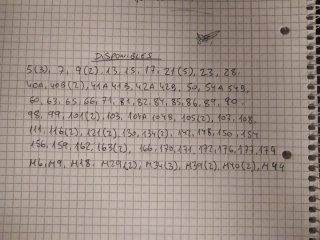 DISPONIBLES
5(3), 7, 9(2), 13, 15, 17, 21(5), 23, 28.
40A, 40B(2), 41A 41B, 42A 42B, 50, 54A 54B,
60, 63, 65, 66, 71, 81, 82, 84, 85, 86, 89, 90.
98, 99, 101(2), 103, 104A 104B, 105(2), 107, 108.
111, 116(2), 121(2), 130, 134(2), 142, 148, 150, 154
156, 159, 162, 163(2), 166, 170, 171, 172, 176, 177, 179
M6, M9, M18, M29(2), M34(3), M39(2), M40(2), M44